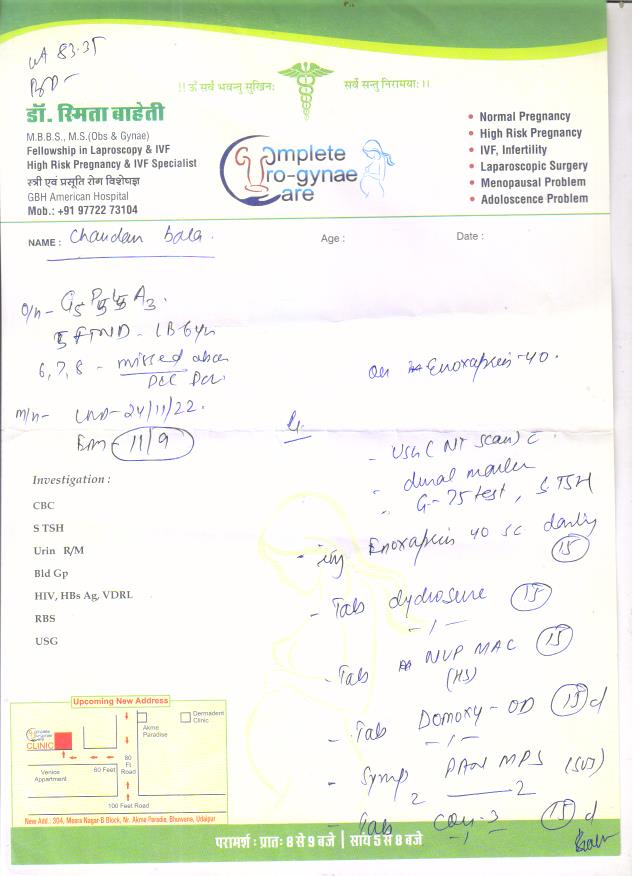 wt 83.35
BP-
!! ॐ सर्वे भवन्तु सुखिनः सर्वे सन्तु निरामयाः !!
डॉ. स्मिता बाहेती
M.B.B.S., M.S.(Obs & Gynae)
Fellowship in Laproscopy & IVF
High Risk Pregnancy & IVF Specialist
स्त्री एवं प्रसूति रोग विशेषज्ञ
GBH American Hospital
Mob.: +91 97722 73104
Complete
Uro-gynae
Care
• Normal Pregnancy
• High Risk Pregnancy
• IVF, Infertility
• Laparoscopic Surgery
• Menopausal Problem
• Adoloscence Problem
NAME : Chandan bala. Age : Date :
O/H-
FTND - LB 6yr
6,7,8 - missed
M/H- LMP- 24/11/22.
11/9
on Enoxaparin-40.
- USG (NT scan) c
- dual marker
- G-75 test, S TSH
- inj Enoxaparin 40 sc daily
15
- Tab dydrosure 15
-1-
- Tab NVP MAC 15
(HS)
- Tab Domoxy-OD 15 d
-1-
- Syrup PAN MPS (SOS)
2 — 2
- Tab 15 d
-1-
Investigation :
CBC
S TSH
Urin R/M
Bld Gp
HIV, HBs Ag, VDRL
RBS
USG
Upcoming New Address
Complete
Uro-gynae
Care
CLINIC
Akme
Paradise
Dermadent
Clinic
Venice
Appartment
60 Feet
80
Ft
Road
100 Feet Road
New Add.: 304, Meera Nagar-B Block, Nr. Akme Paradie, Bhuwana, Udaipur
परामर्श : प्रातः 8 से 9 बजे | सायं 5 से 8 बजे